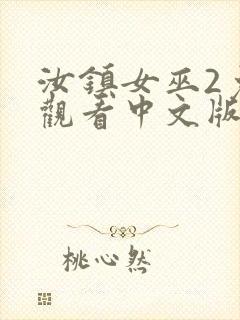 汝鎮女巫2
觀看中文版
桃心然